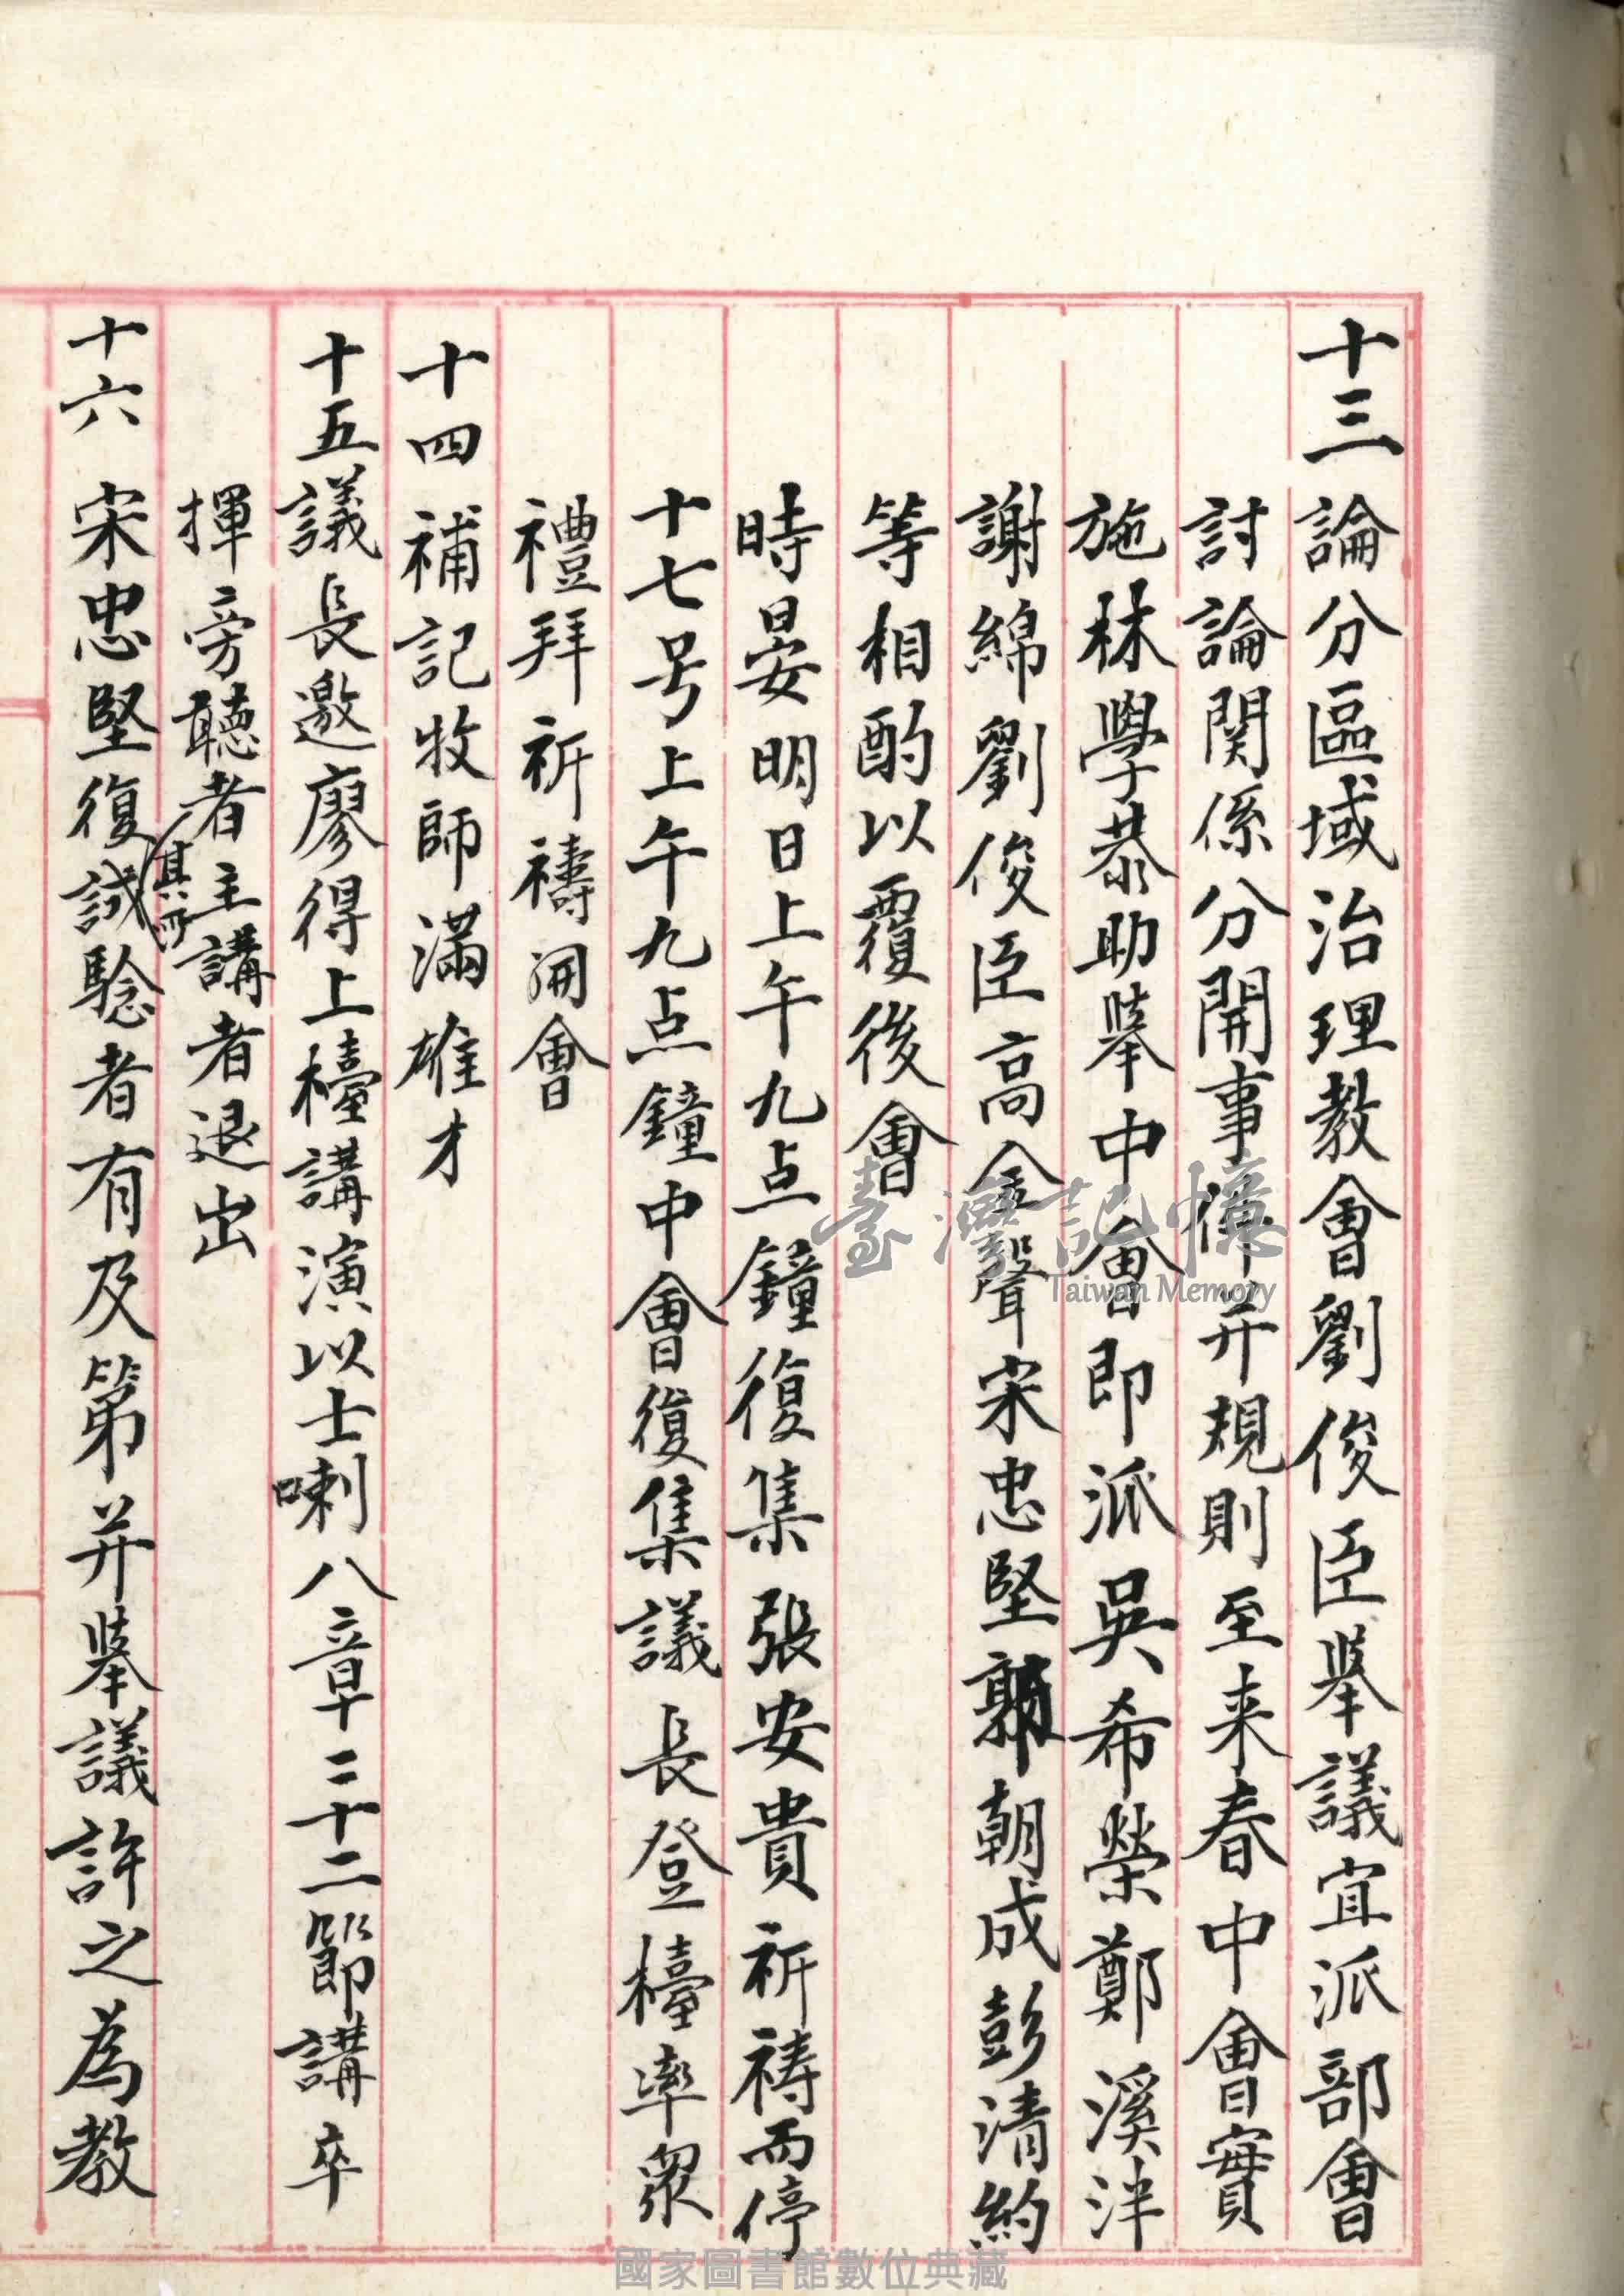 十三 論分區域治理教會劉俊臣舉議宜派部會
討論関係分開事件并規則至来春中會實
施林學恭助舉中會即派吳希榮鄭溪泮
謝綿劉俊臣高金聲宋忠堅郭朝成彭清約
等相酌以覆後會
時晏明日上午九点鐘復集張安貴祈祷而停
十七号上午九点鐘中會復集議長登檯率眾
禮拜祈禱開會
十四 補記牧師滿雄才
十五議長邀廖得上檯講演以士喇八章二十二節講卒
揮旁聽者主講者退出
十六 宋忠堅復試驗者有及第并舉議許之為教
其所
臺灣記憶
Taiwan Memory
國家圖書館數位典藏